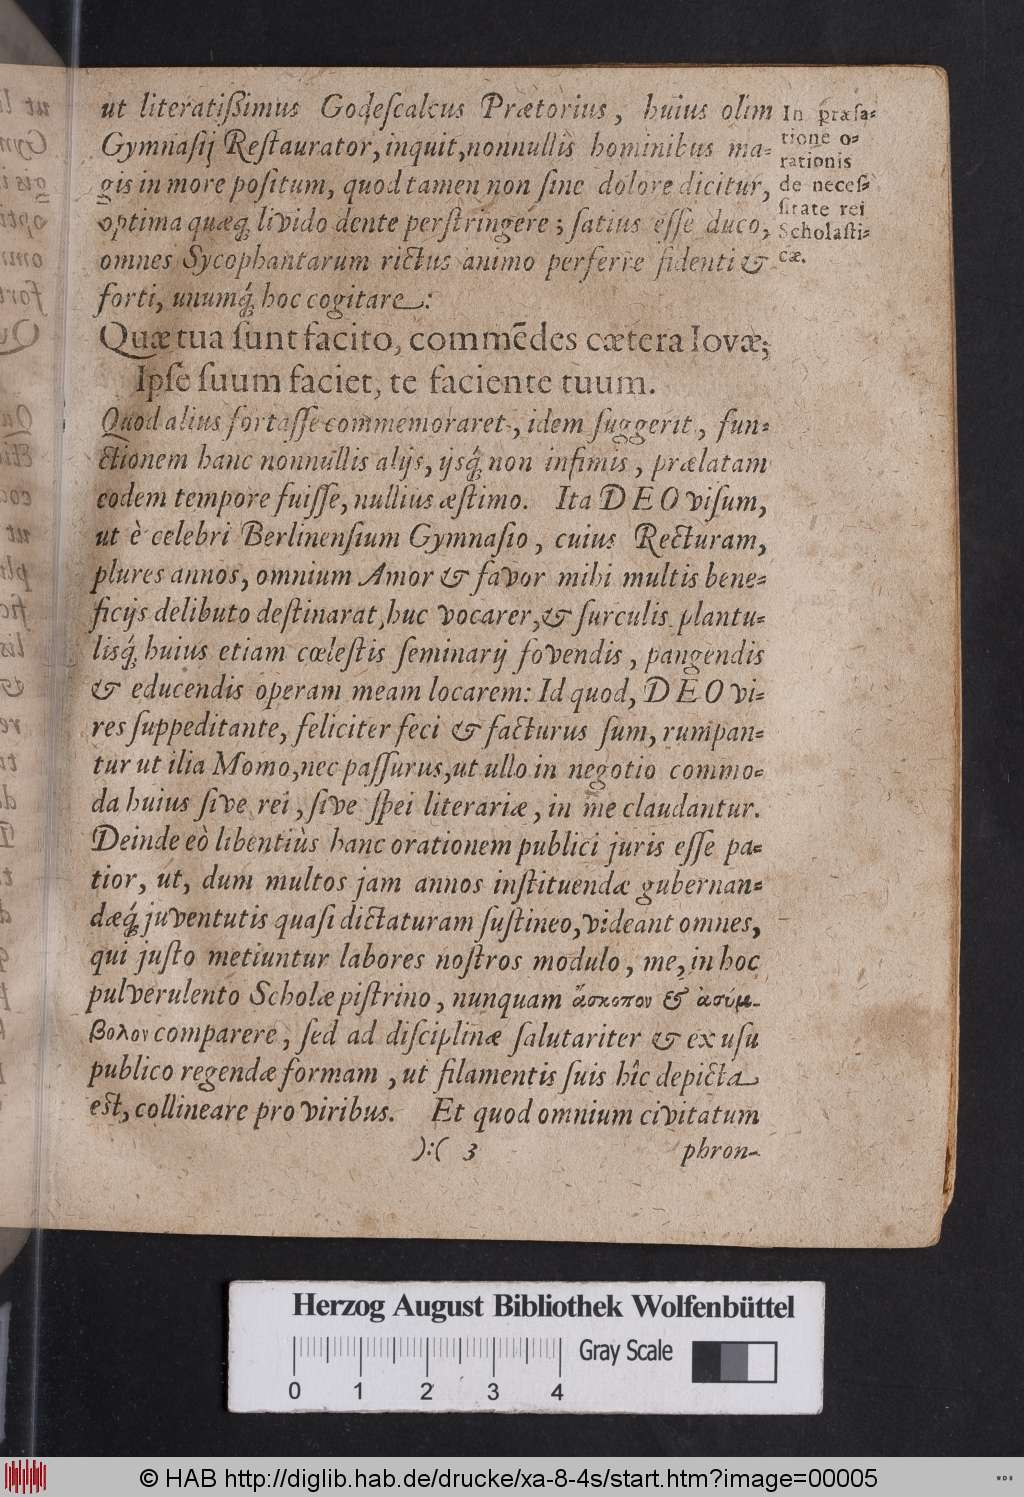 ut literatiſſimus Godeſcalcus Prætorius, huius olim
Gymnaſij Reſtaurator, inquit, nonnullis hominibus ma-
gis in more poſitum, quod tamen non ſine dolore dicitur,
optima quæq́; livido dente perſtringere; ſatius eſſe duco,
omnes Sycophantarum rictus animo perferre fidenti &
forti, unumq́; hoc cogitare:
In præfa-
tione o-
rationis
de neceſ-
ſitate rei
Scholaſti-
cæ.
Quæ tua ſunt facito, commẽdes cætera Iovæ;
Ipſe ſuum faciet, te faciente tuum.
Quod alius fortaſſe commemoraret, idem ſuggerit, fun-
ctionem hanc nonnullis alijs, ijsq́; non infimis, prælatam
eodem tempore fuiſſe, nullius æſtimo. Ita DEO viſum,
ut è celebri Berlinenſium Gymnaſio, cuius Recturam,
plures annos, omnium Amor & favor mihi multis bene-
ficijs delibuto deſtinarat, huc vocarer, & ſurculis plantu-
lisq́; huius etiam cœleſtis ſeminarij fovendis, pangendis
& educendis operam meam locarem: Id quod, DEO vi-
res ſuppeditante, feliciter feci & facturus ſum, rumpan-
tur ut ilia Momo, nec paſſurus, ut ullo in negotio commo-
da huius ſive rei, ſive ſpei literariæ, in me claudantur.
Deinde eò libentiùs hanc orationem publici juris eſſe pa-
tior, ut, dum multos jam annos inſtituendæ gubernan-
dæq́; juventutis quaſi dictaturam ſuſtineo, videant omnes,
qui juſto metiuntur labores noſtros modulo, me, in hoc
pulverulento Scholæ piſtrino, nunquam ἄσκοπον & ἀσύμ-
βολον comparere, ſed ad diſciplinæ ſalutariter & ex uſu
publico regendæ formam, ut filamentis ſuis hîc depicta
est, collineare pro viribus. Et quod omnium civitatum
):( 3 phron-
Herzog August Bibliothek Wolfenbüttel
Gray Scale
0 1 2 3 4
© HAB http://diglib.hab.de/drucke/xa-8-4s/start.htm?image=00005